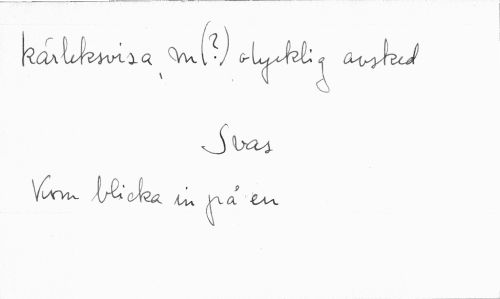 kärleksvisa, m(?) olycklig avsked
Svas
Kom blicka in på en